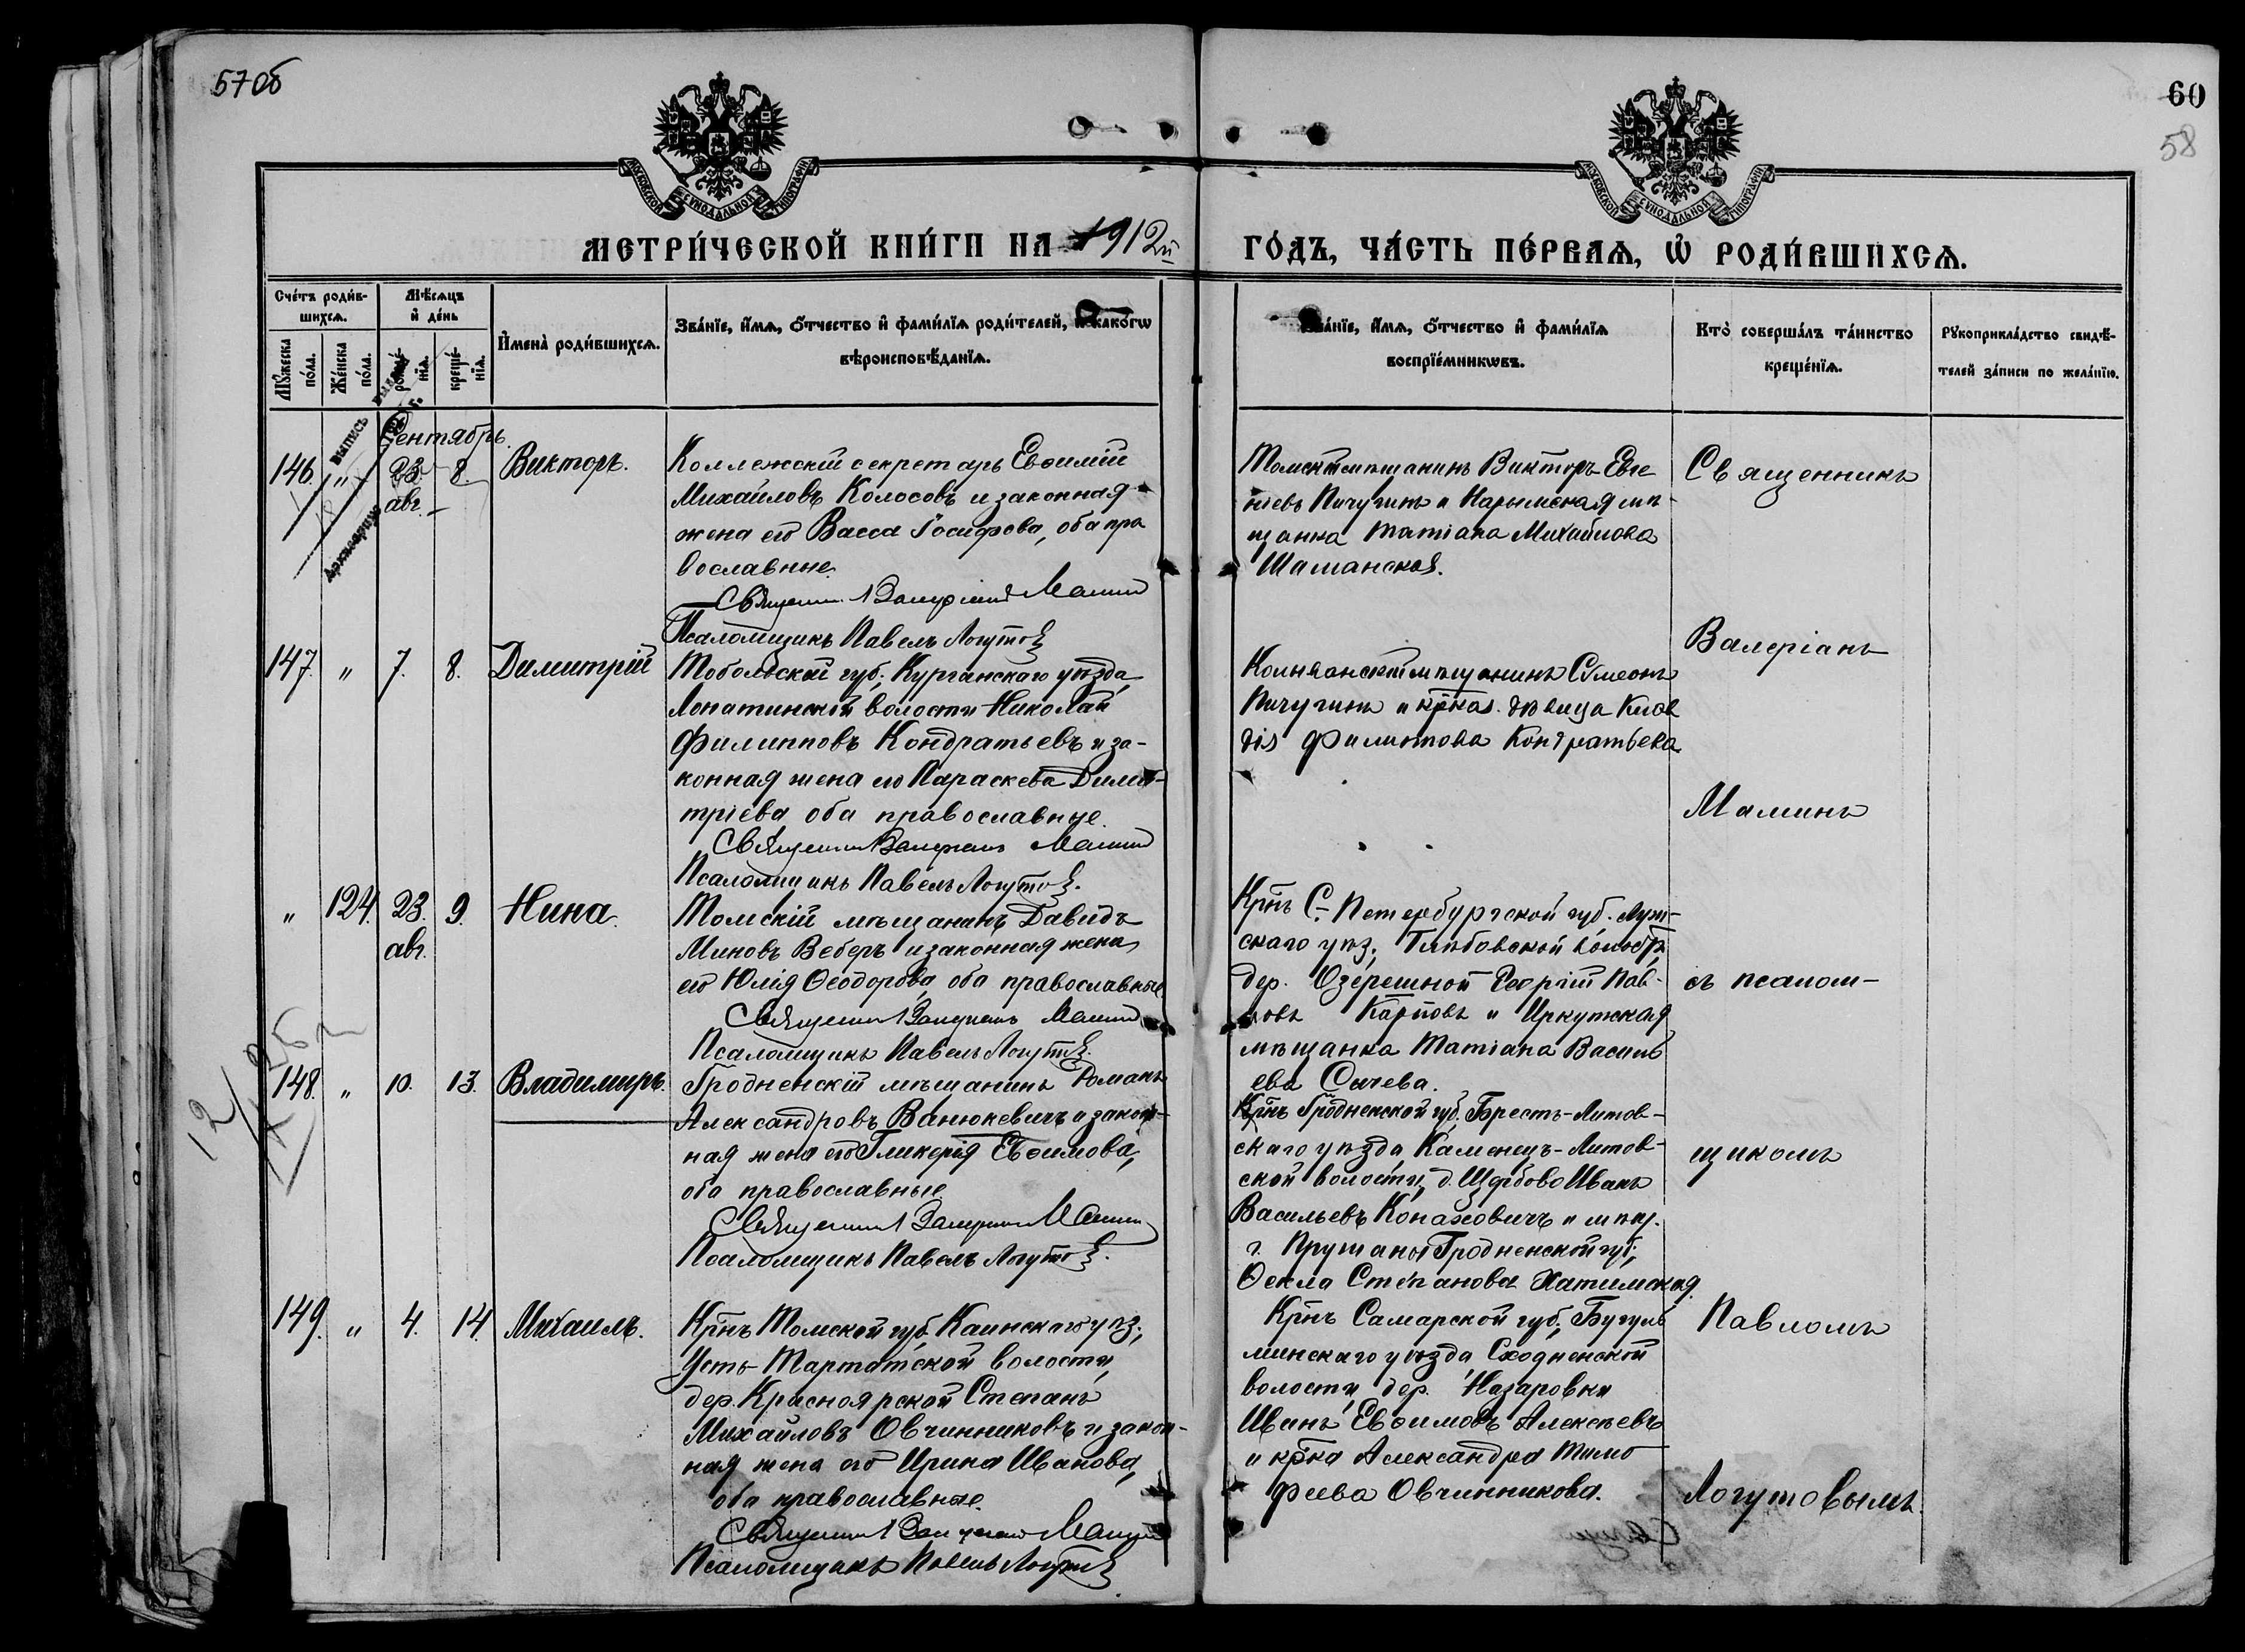 57об
60
58
МОСКОВСКОЙ СѴНОДАЛЬНОЙ ТИПОГРАФІИ
МОСКОВСКОЙ СѴНОДАЛЬНОЙ ТИПОГРАФІИ
МЕТРИ́ЧЕСКОЙ КНИ́ГИ НА 1912й
ГО́ДЪ, ЧА́СТЬ ПЕ́РВАѦ, Ѡ҆ РОДИ́ВШИХСѦ.
Сче́тъ роди́в-
шихсѧ.
Мѣ́сѧцъ
и҆ де́нь
Мꙋ́жеска по́ла.
Же́нска по́ла.
рожде́-нїѧ.
креще́-нїѧ.
И҆мена̀ роди́вшихсѧ.
Зва́нїе, и҆́мѧ, ѻ҆́тчество и҆ фами́лїѧ роди́телей, и҆ како́гѡ
вѣроисповѣ́данїѧ.
Зва́нїе, и҆́мѧ, ѻ҆́тчество и҆ фами́лїѧ
воспрїе́мникѡвъ.
Кто̀ соверша́лъ та́инство
креще́нїѧ.
Рꙋкоприкла́дство свидѣ́-
телей за́писи по жела́нїю.
Сентябрь.
146. " 23 8. Викторъ.
авг.
Коллежскій секретарь Евѳимій
Михаиловъ Колосовъ и законная
жена его Васса Іосифова, оба пра
вославные.
Священник Валеріанъ Маминъ
Псаломщикъ Павелъ Логутов
Томскій мѣщанинъ Викторъ Евге
ніевъ Пичугинъ и Нарымская мѣ
щанка Татіана Михайлова
Шаманская.
Священникъ
147. " 7. 8. Димитрій
Тобольской губ., Курганскаго уѣзда,
Лопатинской волости Николай
Филипповъ Кондратьевъ и за-
конная жена его Параскева Дими-
тріева оба православные.
Священник Валеріанъ Маминъ
Псаломщикъ Павелъ Логутов.
мѣщанинъ Сѵмеонъ
Пичугинъ и кр-кая дѣвица Клав
дія Филиппова Кондратьева
Валеріанъ
Маминъ
" 124. 23. 9. Нина.
авг.
Томскій мѣщанинъ Давидъ
Миновъ Веберъ и законная жена
его Юлія Ѳеодорова, оба православные
Священник Валеріанъ Маминъ
Псаломщикъ Павелъ Логутов.
Крнъ С.-Петербургской губ. Луж-
скаго уѣз., волости,
дер. Озерешной Георгій Пав-
ловъ Карповъ и Иркутская
мѣщанка Татіана Василь
ева Сычева.
съ псалом-
148. " 10. 13. Владимиръ.
Гродненскій мѣщанинъ Романъ
Александровъ Ванюкевичъ и закон-
ная жена его Гликерія Евѳимова,
оба православные
Священник Валеріанъ Маминъ
Псаломщикъ Павелъ Логутов.
Крнъ Гродненской губ. Брестъ-Литов-
скаго уѣзда, Каменецъ-Литов-
ской волости, д. Щербово Иванъ
Васильевъ Конаховичъ и мѣщ.
г. Пружаны Гродненской губ.,
Ѳекла Степанова Хатимская.
щикомъ
149. " 4. 14. Михаилъ.
Крнъ Томской губ. Каинскаго уѣз.,
Усть-Тартатской волости,
дер. Красноярской Степанъ
Михайловъ Овчинниковъ и закон-
ная жена его Ирина Иванова,
оба православные.
Священник Валеріанъ Маминъ
Псаломщикъ Павелъ Логутов
Крнъ Самарской губ., Бугуль
минскаго уѣзда Сходненской
волости, дер. Назаровки
Иванъ Евѳимовъ Алексѣевъ
и кр-ка Александра Тимо
феева Овчинникова.
Павломъ
Логутовымъ.